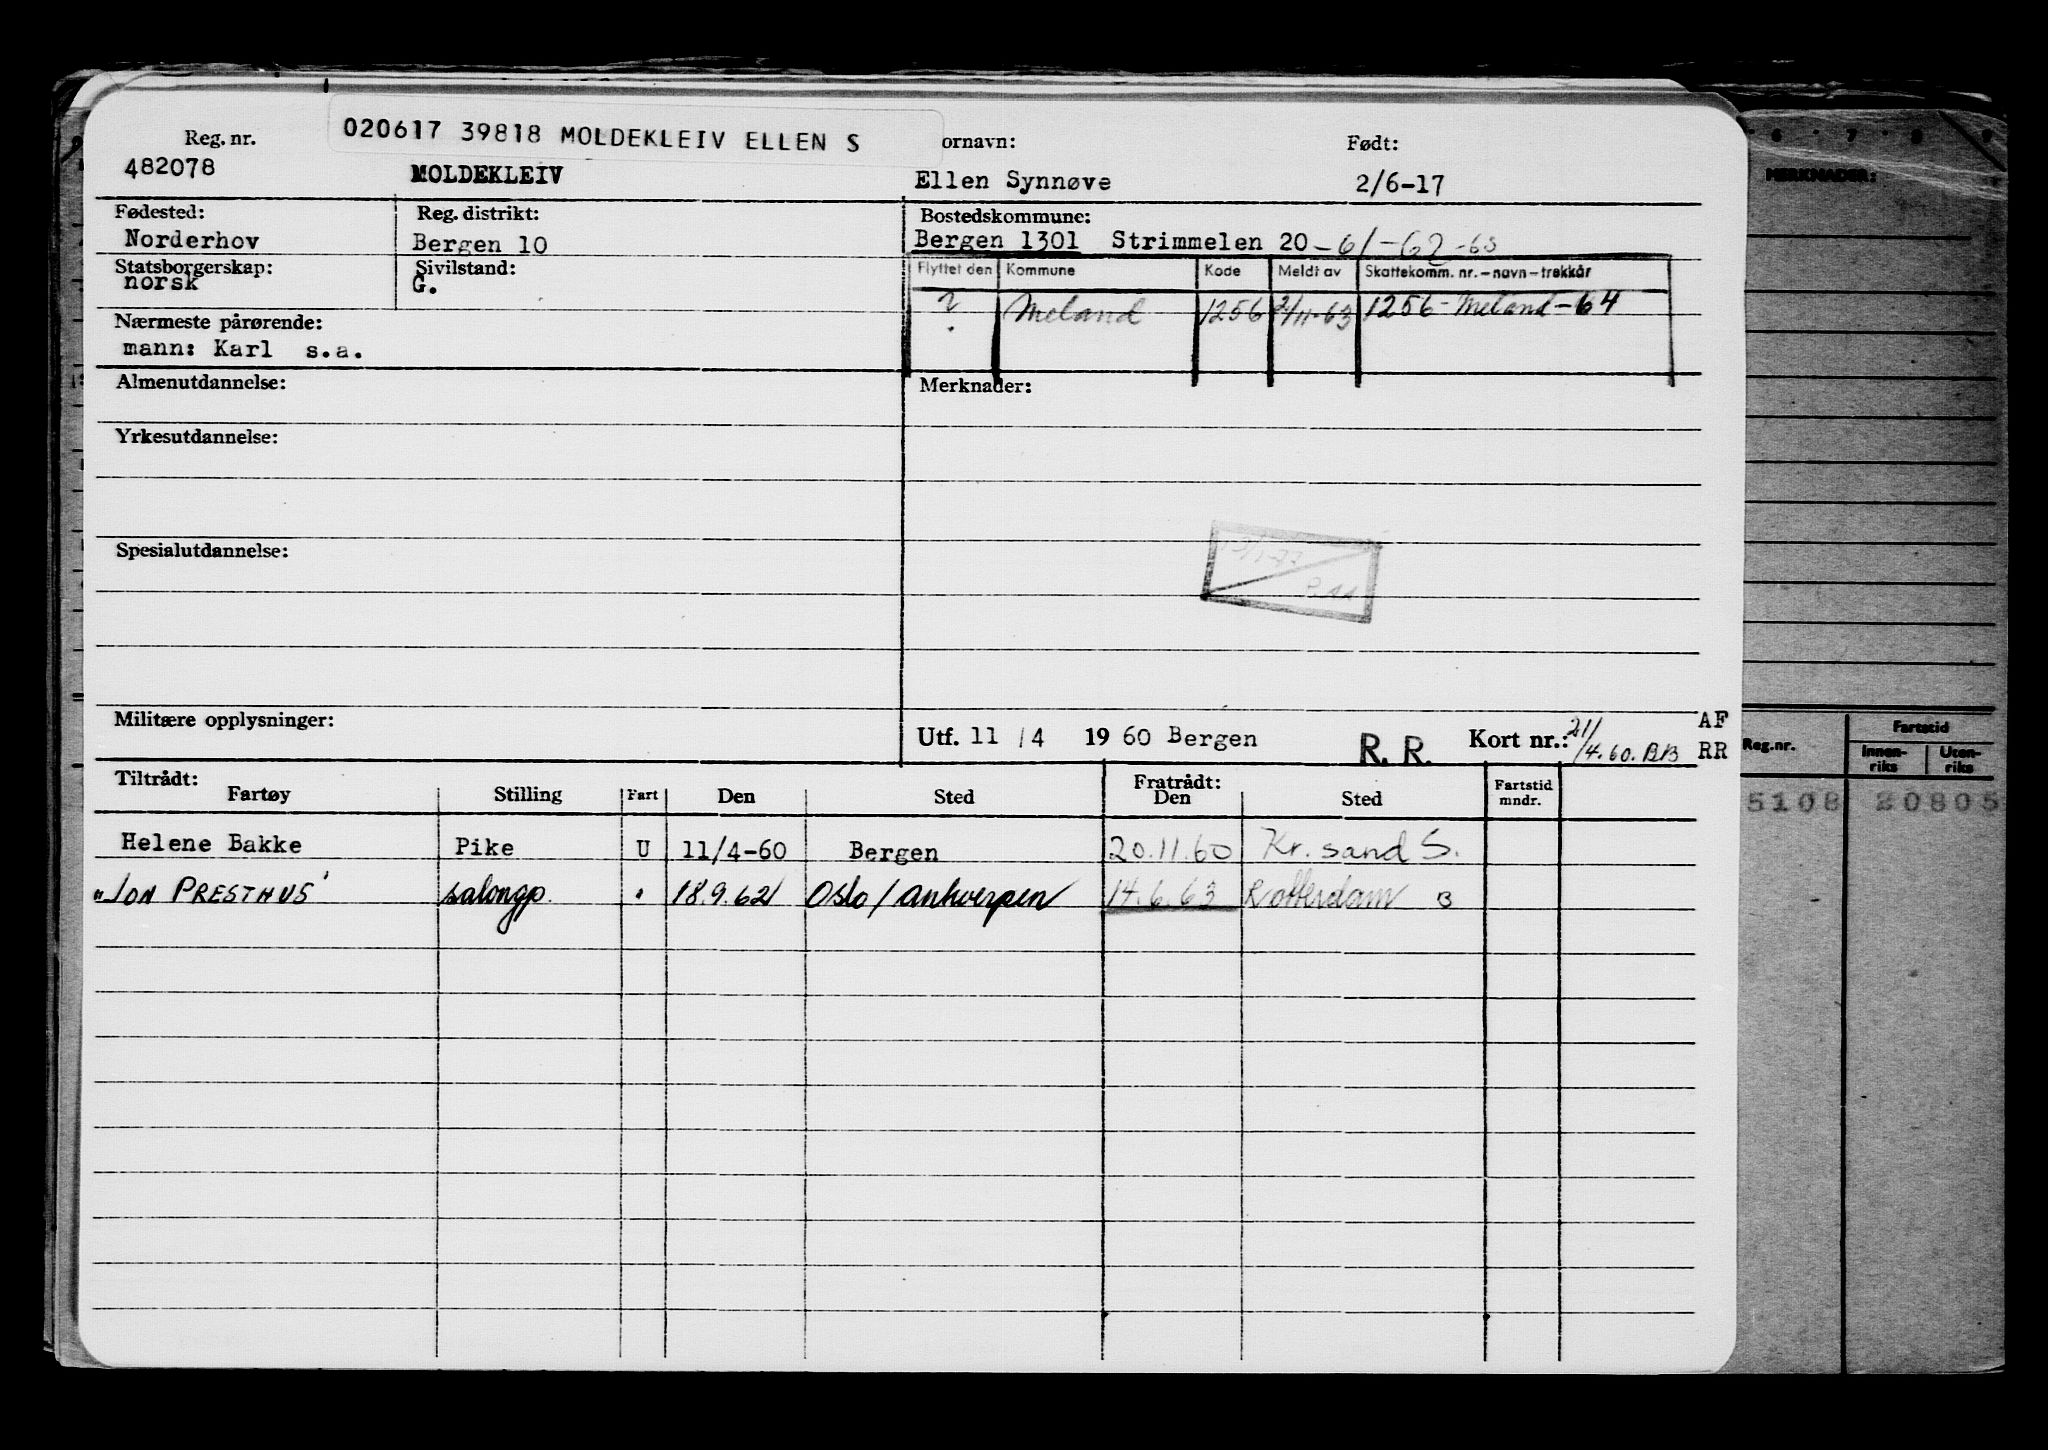 020617 39818 MOLDEKLEIV ELLEN S
Reg. nr. ornavn: Født:
482078 MOLDEKLEIV Ellen Synnøve 2/6-17
Fødested: Reg. distrikt: Bostedskommune:
Norderhov Bergen 10 Bergen 1301 Strimmelen 20 -61-62-63
Statsborgerskap: Sivilstand: Flyttet den Kommune Kode Meldt av Skattekomm. nr. - navn - trekkår
norsk G.
? Meland 1256 2/11-63 1256 - Meland - 64
Nærmeste pårørende:
mann: Karl s.a.
Almenutdannelse: Merknader:
Yrkesutdannelse:
Spesialutdannelse:
Militære opplysninger: Utf. 11 / 4 19 60 Bergen R. R. Kort nr.: 21/4.60. BB AF RR
Tiltrådt: Fratrådt:
Fartøy Stilling Fart Den Sted Den Sted Fartstid mndr.
Helene Bakke Pike U 11/4-60 Bergen 20.11.60 Kr. sand S.
"JON PRESTHUS' salongp. " 18.9.62 Oslo / Antwerpen 14.6.63 Rotterdam B
6 7 8 9
MERKNADER:
Reg.nr. Fartstid
Innen-riks Uten-riks
5108 20805